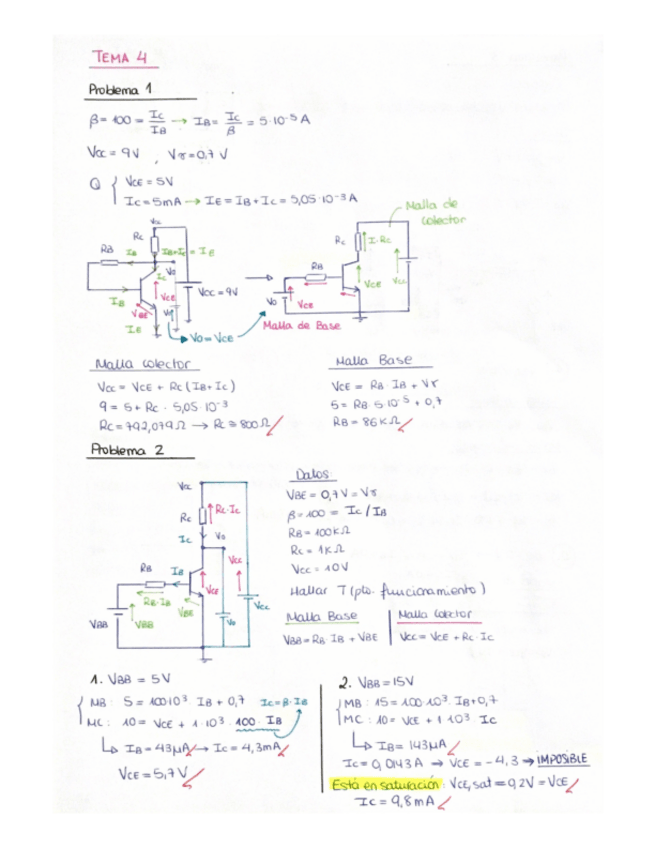 TEMA 4
Problema 1
β = 100 = Ic/IB → IB = Ic/β = 5·10⁻⁵ A
Vcc = 9V , Vγ = 0,7 V
Q { VCE = 5V
Ic = 5mA → IE = IB + Ic = 5,05·10⁻³ A
Malla de colector
Vcc
Rc
RB
IB
IB+Ic = IE
Vo
Ic
VCE
Vcc = 9V
IB
VBE
Vo
IE
Vo = VCE
Rc
I·Rc
RB
VCE
Vcc
Vo
VCE
Malla de Base
Malla colector
Vcc = VCE + Rc (IB + Ic)
9 = 5 + Rc · 5,05·10⁻³
Rc = 792,079Ω → Rc ≅ 800Ω
Malla Base
VCE = RB · IB + Vγ
5 = RB · 5·10⁻⁵ + 0,7
RB = 86KΩ
Problema 2
Vcc
Rc
Rc·Ic
Ic
Vo
RB
IB
Vcc
VCE
RB·IB
VBE
VBB
VBB
Vo
Vcc
Datos:
VBE = 0,7V = Vγ
β = 100 = Ic/IB
RB = 100KΩ
Rc = 1KΩ
Vcc = 10V
Hallar T (pto. funcionamiento)
Malla Base
VBB = RB·IB + VBE
Malla Colector
Vcc = VCE + Rc·Ic
1. VBB = 5V
MB: 5 = 100·10³ IB + 0,7 Ic = β·IB
MC: 10 = VCE + 1·10³ · 100 · IB
↳ IB = 43μA → Ic = 4,3mA
VCE = 5,7V
2. VBB = 15V
MB: 15 = 100·10³·IB + 0,7
MC: 10 = VCE + 1·10³ Ic
↳ IB = 143μA
Ic = 0,0143A → VCE = -4,3 → IMPOSIBLE
Está en saturación: VCE,sat = 0,2V = VCE
Ic = 9,8mA